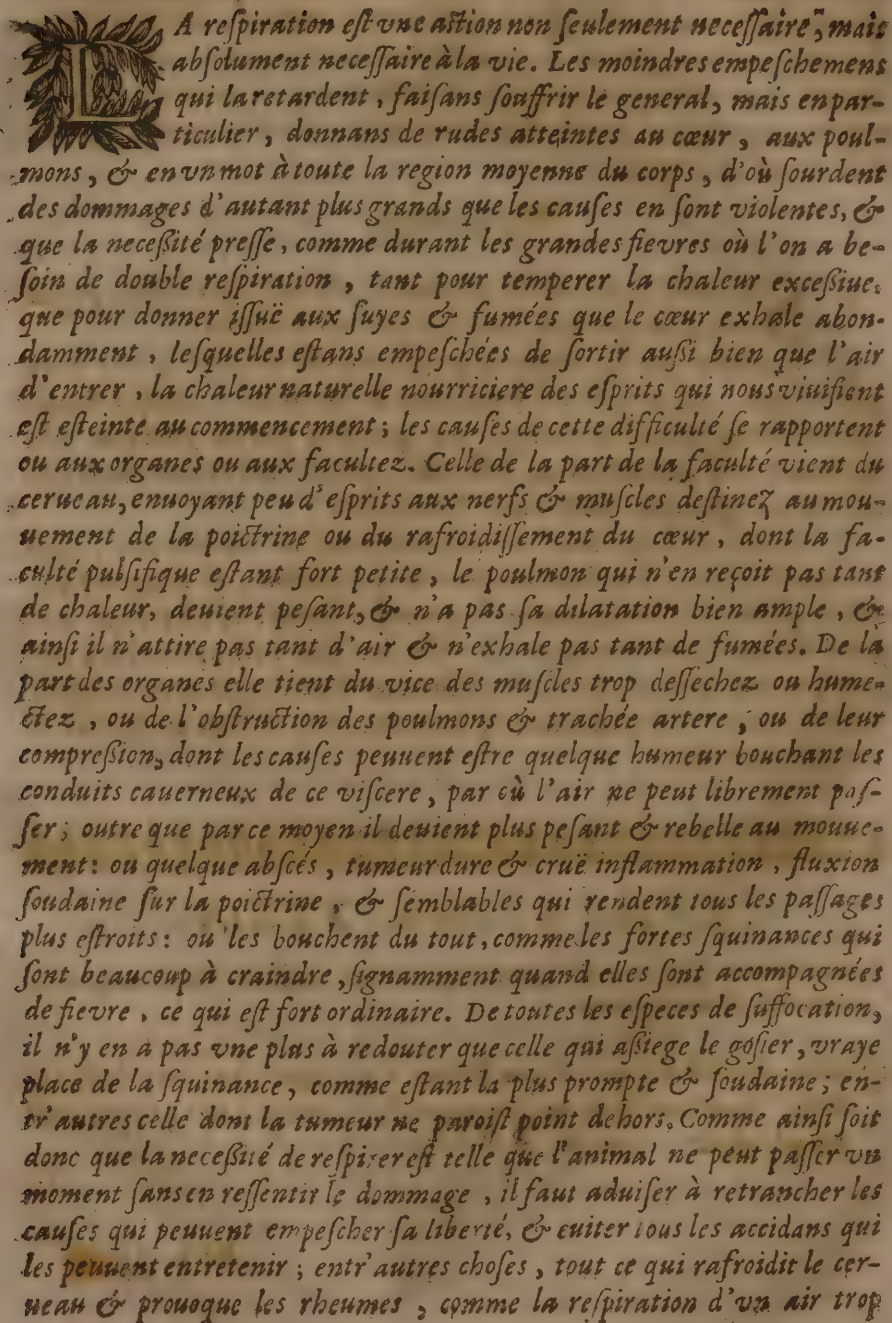 LA reſpiration eſt vne action non ſeulement neceſſaire, mais
abſolument neceſſaire à la vie. Les moindres empeſchemens
qui la retardent, faiſans ſouffrir le general, mais en par-
ticulier, donnans de rudes atteintes au cœur, aux poul-
mons, & en vn mot à toute la region moyenne du corps, d'où ſourdent
des dommages d'autant plus grands que les cauſes en ſont violentes, &
que la neceßité preſſe, comme durant les grandes fievres où l'on a be-
ſoin de double reſpiration, tant pour temperer la chaleur exceßiue,
que pour donner iſſuë aux ſuyes & fumées que le cœur exhale abon-
damment, leſquelles eſtans empeſchées de ſortir außi bien que l'air
d'entrer, la chaleur naturelle nourriciere des eſprits qui nous viuifient
eſt eſteinte au commencement; les cauſes de cette difficulté ſe rapportent
ou aux organes ou aux facultez. Celle de la part de la faculté vient du
cerueau, enuoyant peu d'eſprits aux nerfs & muſcles deſtinez au mou-
uement de la poictrine ou du rafroidiſſement du cœur, dont la fa-
culté pulſifique eſtant fort petite, le poulmon qui n'en reçoit pas tant
de chaleur, deuient peſant, & n'a pas ſa dilatation bien ample, &
ainſi il n'attire pas tant d'air & n'exhale pas tant de fumées. De la
part des organes elle tient du vice des muſcles trop deſſechez ou hume-
ctez, ou de l'obſtruction des poulmons & trachée artere, ou de leur
compreßion, dont les cauſes peuuent eſtre quelque humeur bouchant les
conduits cauerneux de ce viſcere, par où l'air ne peut librement paſ-
ſer; outre que par ce moyen il deuient plus peſant & rebelle au mouue-
ment: ou quelque abſcés, tumeur dure & cruë inflammation, fluxion
ſoudaine ſur la poictrine, & ſemblables qui rendent tous les paſſages
plus eſtroits: ou les bouchent du tout, comme les fortes ſquinances qui
ſont beaucoup à craindre, ſignamment quand elles ſont accompagnées
de fievre, ce qui eſt fort ordinaire. De toutes les eſpeces de ſuffocation,
il n'y en a pas vne plus à redouter que celle qui aßiege le goſier, vraye
place de la ſquinance, comme eſtant la plus prompte & ſoudaine; en-
tr'autres celle dont la tumeur ne paroiſt point dehors. Comme ainſi ſoit
donc que la neceßité de reſpirer eſt telle que l'animal ne peut paſſer vn
moment ſans en reſſentir le dommage, il faut aduiſer à retrancher les
cauſes qui peuuent empeſcher ſa liberté, & euiter tous les accidans qui
les peuuent entretenir; entr'autres choſes, tout ce qui rafroidit le cer-
ueau & prouoque les rheumes, comme la reſpiration d'vn air trop